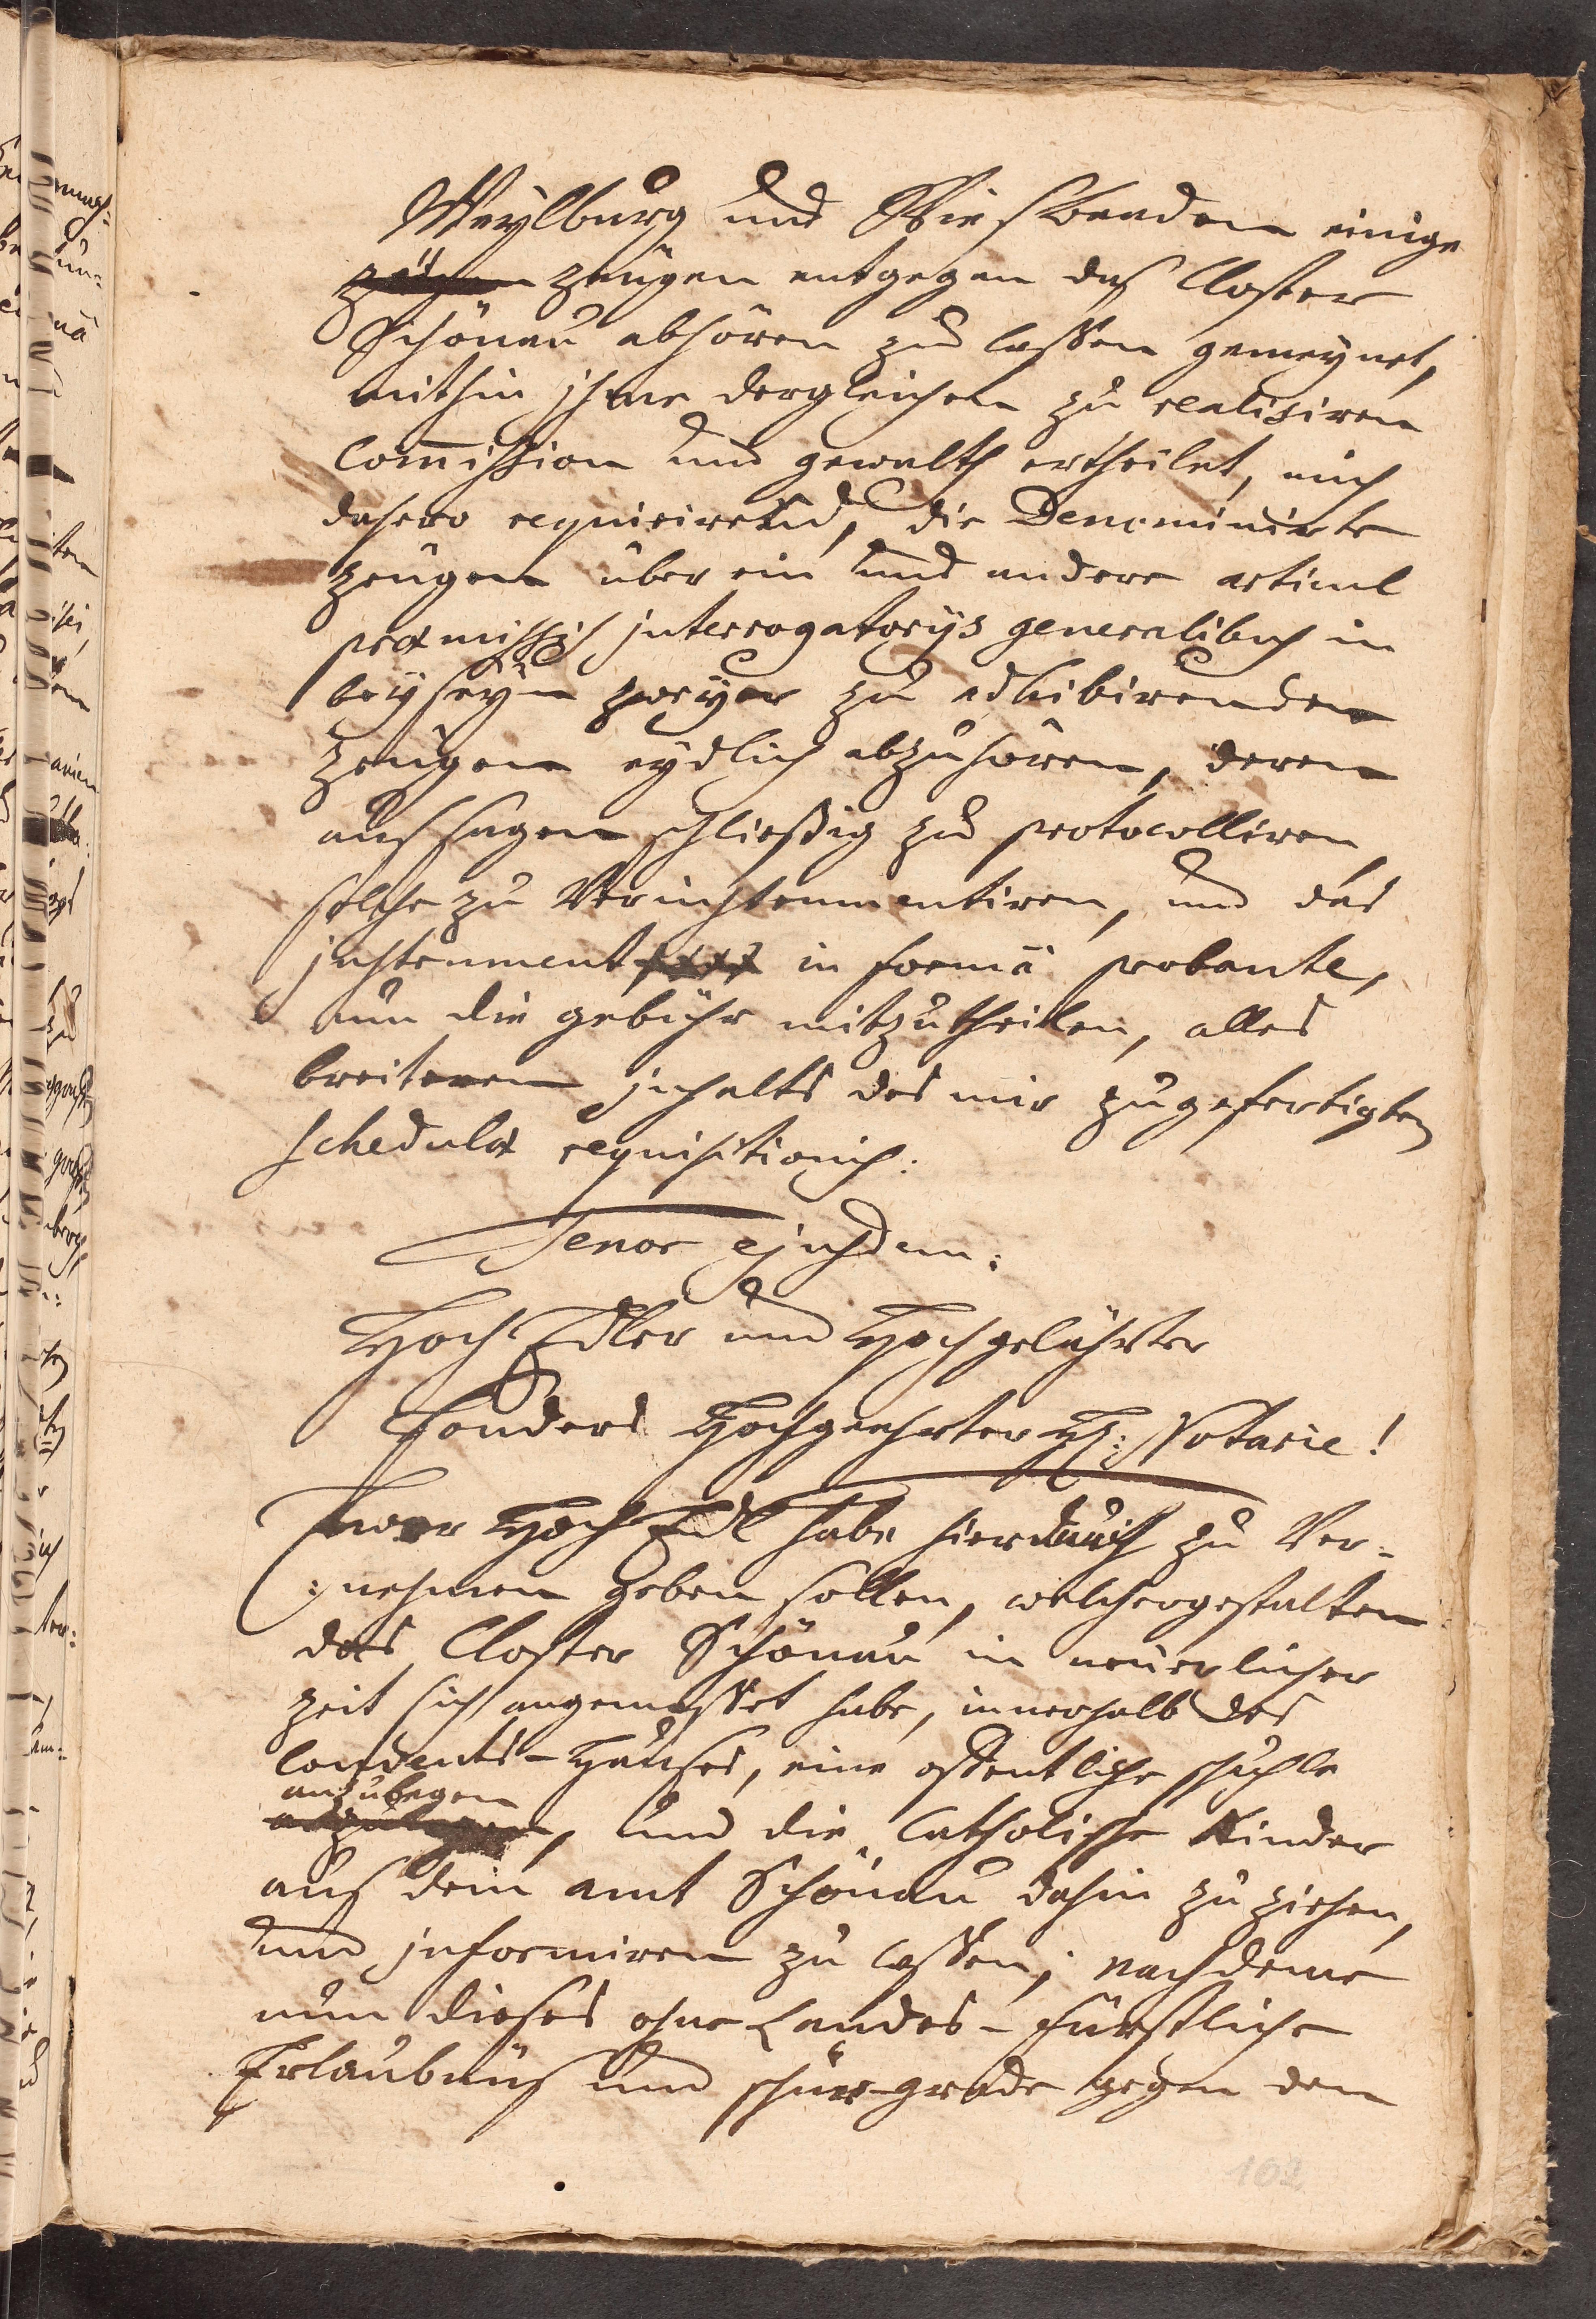 Weylburg und Wießbaaden einige
zeugen entgegen das Closter
Schönau abhören zu laßen gemeynet,
mithin ihme dergleichen zu realisiren
Com̄ission und gewalth ertheilet, mich
dahero requirirend, die Denominirte
zeugen über ein und andere articul
præmissis interrogatorys generalibus in
beyseyn zweyer zu adhibirenden
zeugen eydlich abzuhören, deren
aussagen fleißig zu protocolliren
solche zu Verinstrumentiren, und das
instrument in formâ probante,
um die gebühr mitzutheilen, alles
breiteren inhalts des mir zugefertigten
schedulæ requisitionis.
Tenor ejusdem:
Hoch Edler und Hochgelährter
Sonders Hochgeehrter H: Notarie!
Ewer Hoch Edl habe hierdurch zu Ver=
=nehmen geben sollen, welchergestalten
das Closter Schönau in neuerlicher
zeit sich angemaßet habe, innerhalb des
Convents-Haußes, eine offentliche schuhle
anzulegen
, und die Catholische Kinder
aus dem amt Schönau dahin zu ziehen,
und informiren zu laßen; nachdeme
nun dieses ohne Landes-fürstliche
Erlaubnüß und schnur-grade gegen den
102